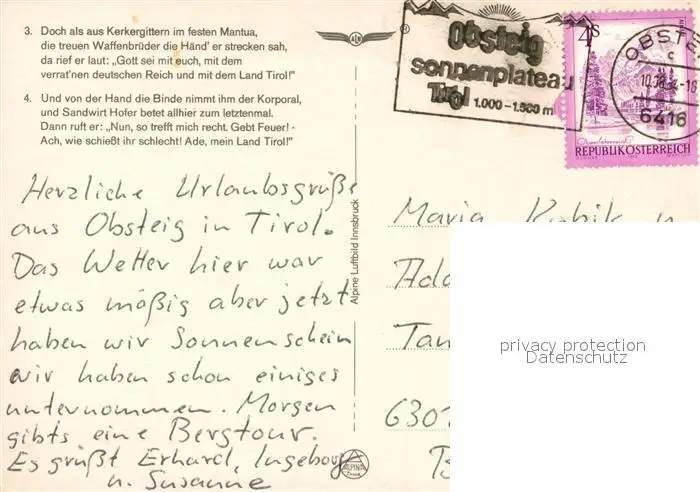 3. Doch als aus Kerkergittern im festen Mantua,
die treuen Waffenbrüder die Händ' er strecken sah,
da rief er laut: „Gott sei mit euch, mit dem
verrat'nen deutschen Reich und mit dem Land Tirol!"
4. Und von der Hand die Binde nimmt ihm der Korporal,
und Sandwirt Hofer betet allhier zum letztenmal.
Dann ruft er: „Nun, so trefft mich recht. Gebt Feuer! -
Ach, wie schießt ihr schlecht! Ade, mein Land Tirol!"
Herzliche Urlaubsgrüße
aus Obsteig in Tirol.
Das Wetter hier war
etwas mäßig aber jetzt
haben wir Sonnenschein
wir haben schon einiges
unternommen. Morgen
gibts eine Bergtour.
Es grüßt Erhard, Ingeborg
u. Susanne
Alpine Luftbild Innsbruck
ALPINE
Obsteig
sonnenplateau
Tirol 1.000-1.500 m
4S
REPUBLIK ÖSTERREICH
OBSTE
c
6416
Maria Kubik u
Ada
Tan
630
privacy protection
Datenschutz